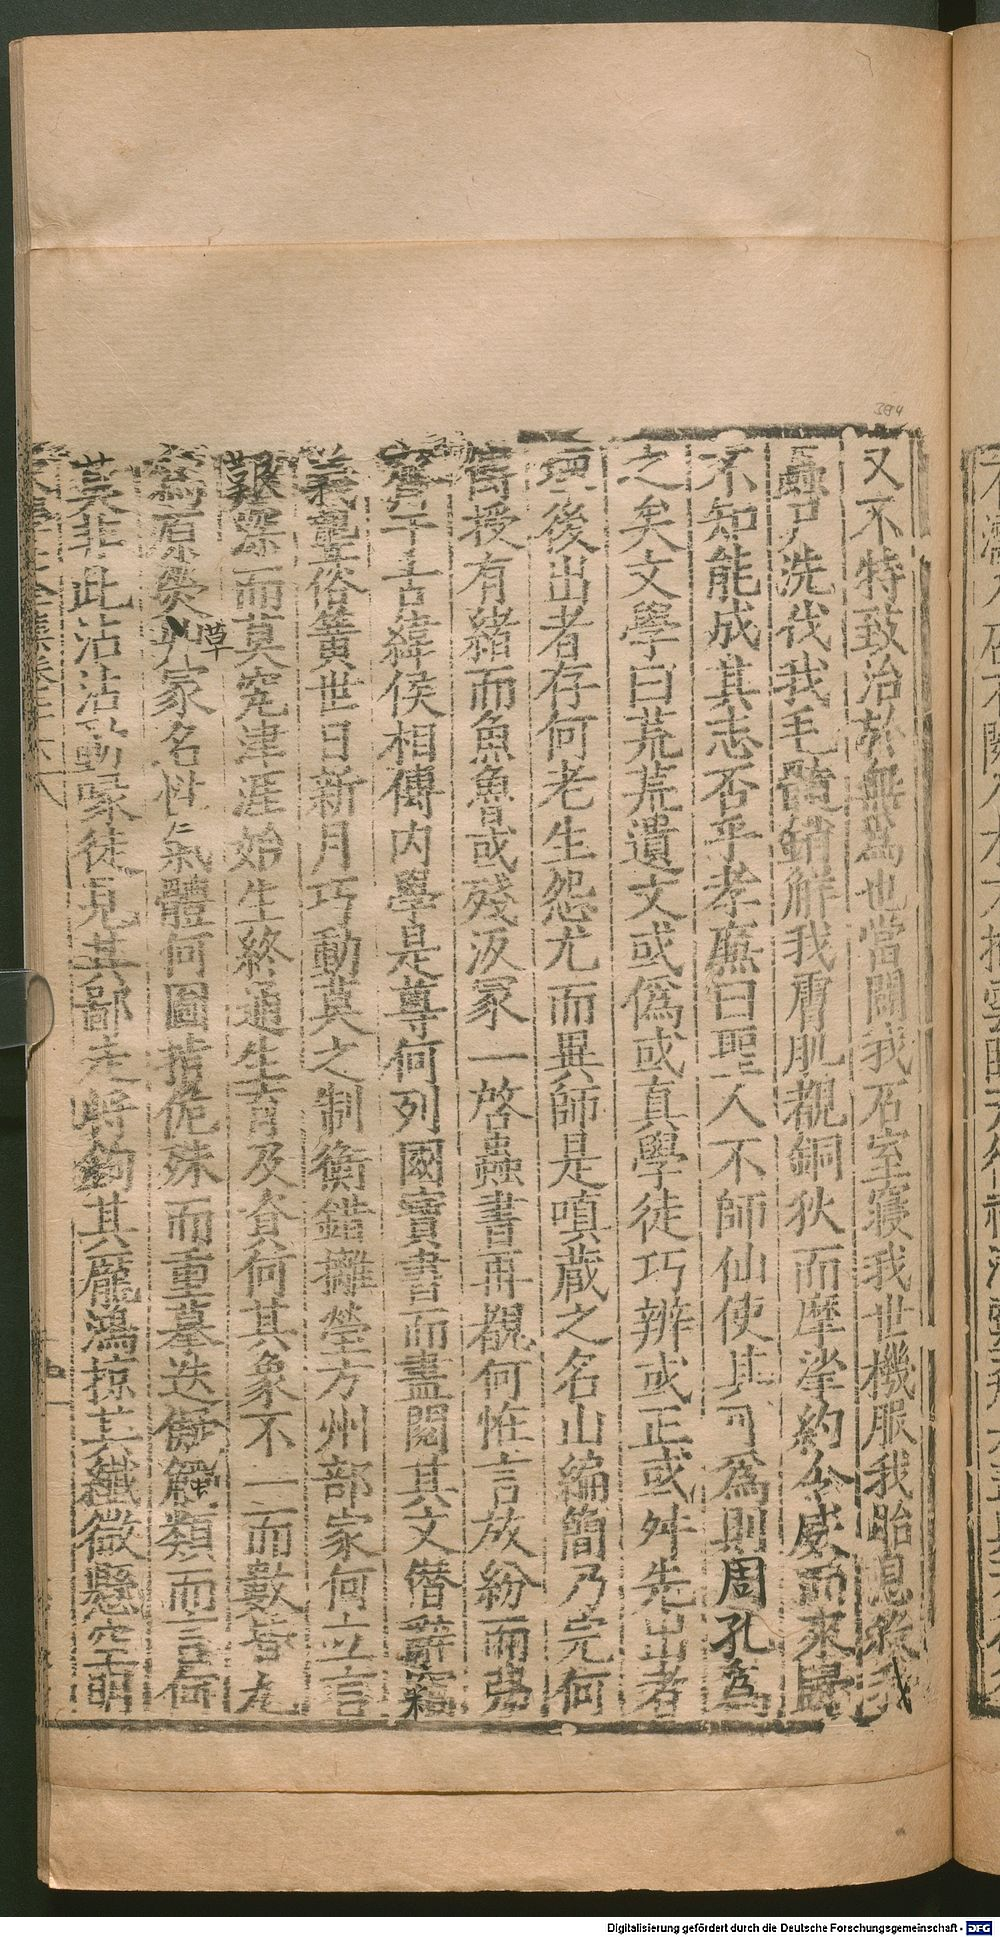 又不特致治於無為也當闢我石室寢我世機服我胎息滌我
尸洗伐我毛髓銷解我膚肌覩銅狄而摩挲約令威而來歸
不知能成其志否乎孝廡曰聖人不師仙使其可為則周孔為
之矣文學曰荒荒遺文或偽或真學徒巧辨或正或舛先出者
後出者存何老生怨尤而異師是嗔蔵之名山編簡乃完何
授有緒而魚魯或殘汲冢一啓蟲書再覩何惟言放紛而弗
齊千古緯侯相傳内學是尊何列國寶書而盡閱其文僭辭竊
義聾俗簧世日新月巧動莫之制衡錯攡瑩方州部家何立言
艱深而莫究津涯始生終通生育及資何其象不一而數皆九
為原㷼家名性氣體何圖指佹殊而重墓迭儗觸類而言何
莫非此沾沾動喙徒見其鄙走將鉤其龎鴻掠其纖微懸空明
草
394
Digitalisierung gefördert durch die Deutsche Forschungsgemeinschaft - DFG